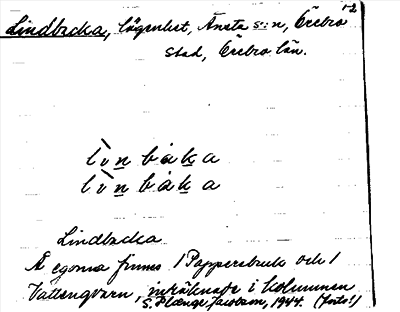 12
Lindbacka, lägenhet, Ånsta s:n, Örebro
stad, Örebro län.
lìnbáka
lìnbáka
Lindbacka
Å egorna finnes 1 Pappersbruk och 1
Vattenqvarn, inräknade i kolumnen
S. Plænge Jacobson, 1944. (foto!)